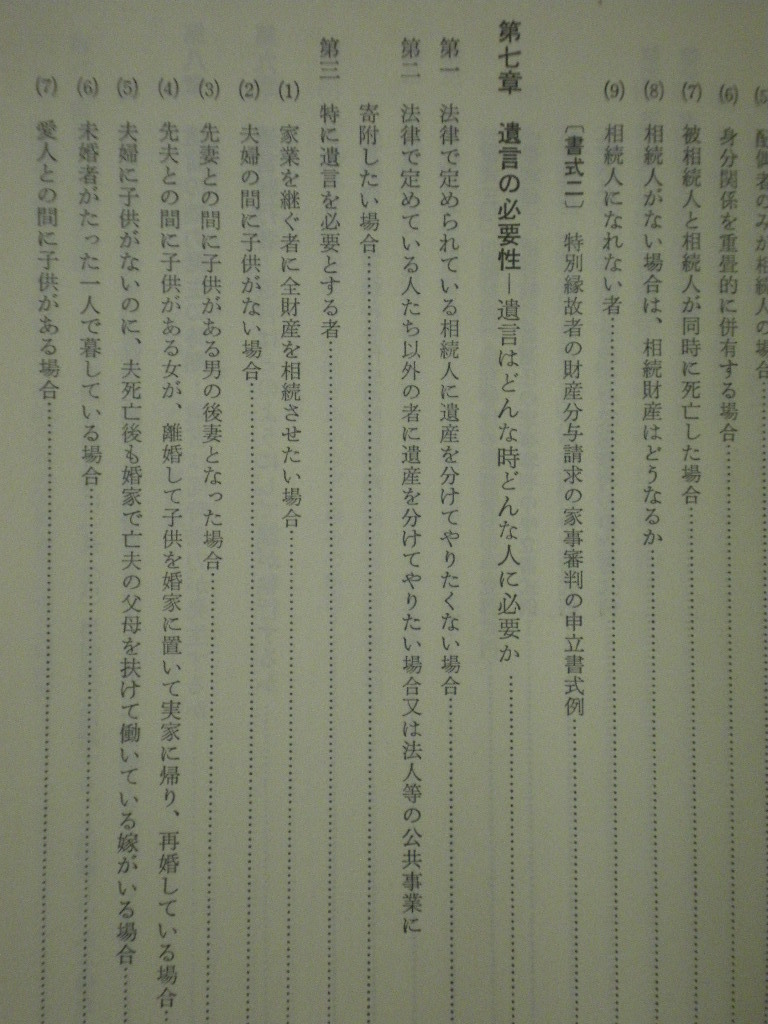 (5) 配偶者のみが相続人の場合……
(6) 身分関係を重畳的に併有する場合……
(7) 被相続人と相続人が同時に死亡した場合……
(8) 相続人がない場合は、相続財産はどうなるか……
(9) 相続人になれない者……
〔書式二〕 特別縁故者の財産分与請求の家事審判の申立書式例……
第七章 遺言の必要性―遺言はどんな時どんな人に必要か……
第一 法律で定められている相続人に遺産を分けてやりたくない場合……
第二 法律で定めている人たち以外の者に遺産を分けてやりたい場合又は法人等の公共事業に
寄附したい場合……
第三 特に遺言を必要とする者……
(1) 家業を継ぐ者に全財産を相続させたい場合……
(2) 夫婦の間に子供がない場合……
(3) 先妻との間に子供がある男の後妻となった場合……
(4) 先夫との間に子供がある女が、離婚して子供を婚家に置いて実家に帰り、再婚している場合…
(5) 夫婦に子供がないのに、夫死亡後も婚家で亡夫の父母を扶けて働いている嫁がいる場合……
(6) 未婚者がたった一人で暮している場合……
(7) 愛人との間に子供がある場合……